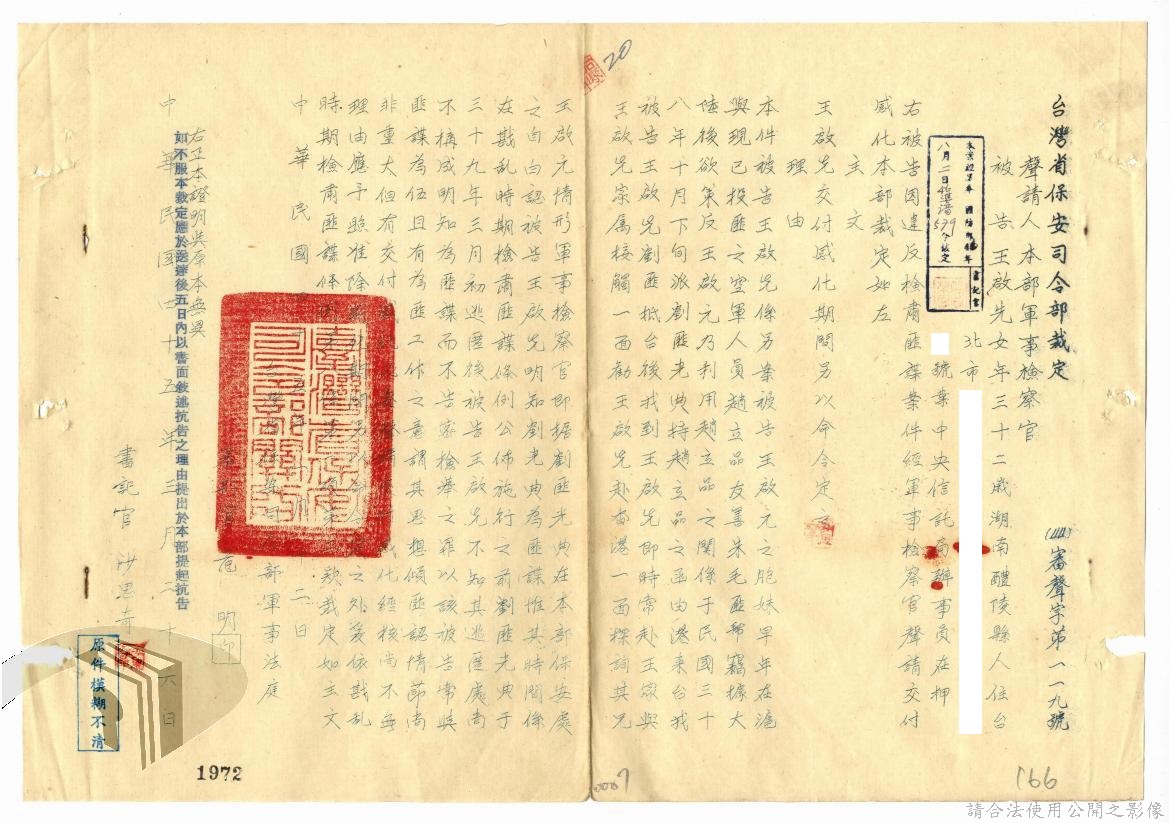 20
台灣省保安司令部裁定
(44)審聲字第一一九號
聲請人 本部軍事檢察官
被告 王啟先 女 年三十二歲 湖南醴陵縣人 住台
北市
號業中央信託局辦事員在押
右被告因違反檢肅匪諜案件經軍事檢察官聲請交付
感化本部裁定如左
主文
王啟先交付感化期間另以命令定之
理由
本件被告王啟先係另案被告王啟元之胞妹早年在滬
與現已投匪之空軍人員趙立品友善朱毛匪幫竊據大
陸後欲策反王啟元乃利用趙立品之關係于民國三十
八年十月下旬派劉匪光典持趙立品之函由港來台找
被告王啟先劉匪抵台後找到王啟先即時常赴王家與
王啟先家屬接觸一面勸王啟先赴香港一面探詢其兄
王啟元情形軍事檢察官即據劉匪光典在本部保安處
之自白認被告王啟先明知劉光典為匪諜惟其時間係
在戡亂時期檢肅匪諜條例公佈施行之前劉匪光典于
三十九年三月初逃匿後被告王啟先不知其逃匿處尚
不構成明知為匪諜而不告密檢舉之罪以該被告常與
匪諜為伍且有為匪工作之意謂其思想傾匪認情節尚
非重大但有交付感化
代經核尚不無
理由應予照准除
期間另以命令
之外爰依戡亂
時期檢肅匪諜條
裁定如主文
中華民國
二日
部軍事法庭
明 印
右正本證明與原本無異
如不服本裁定應於送達後五日內以書面敘述抗告之理由提出於本部提起抗告
中華民國四十五年三月二十六日
書記官 沙思奇
原件模糊不清
書記官
1972
0007
166
請合法使用公開之影像